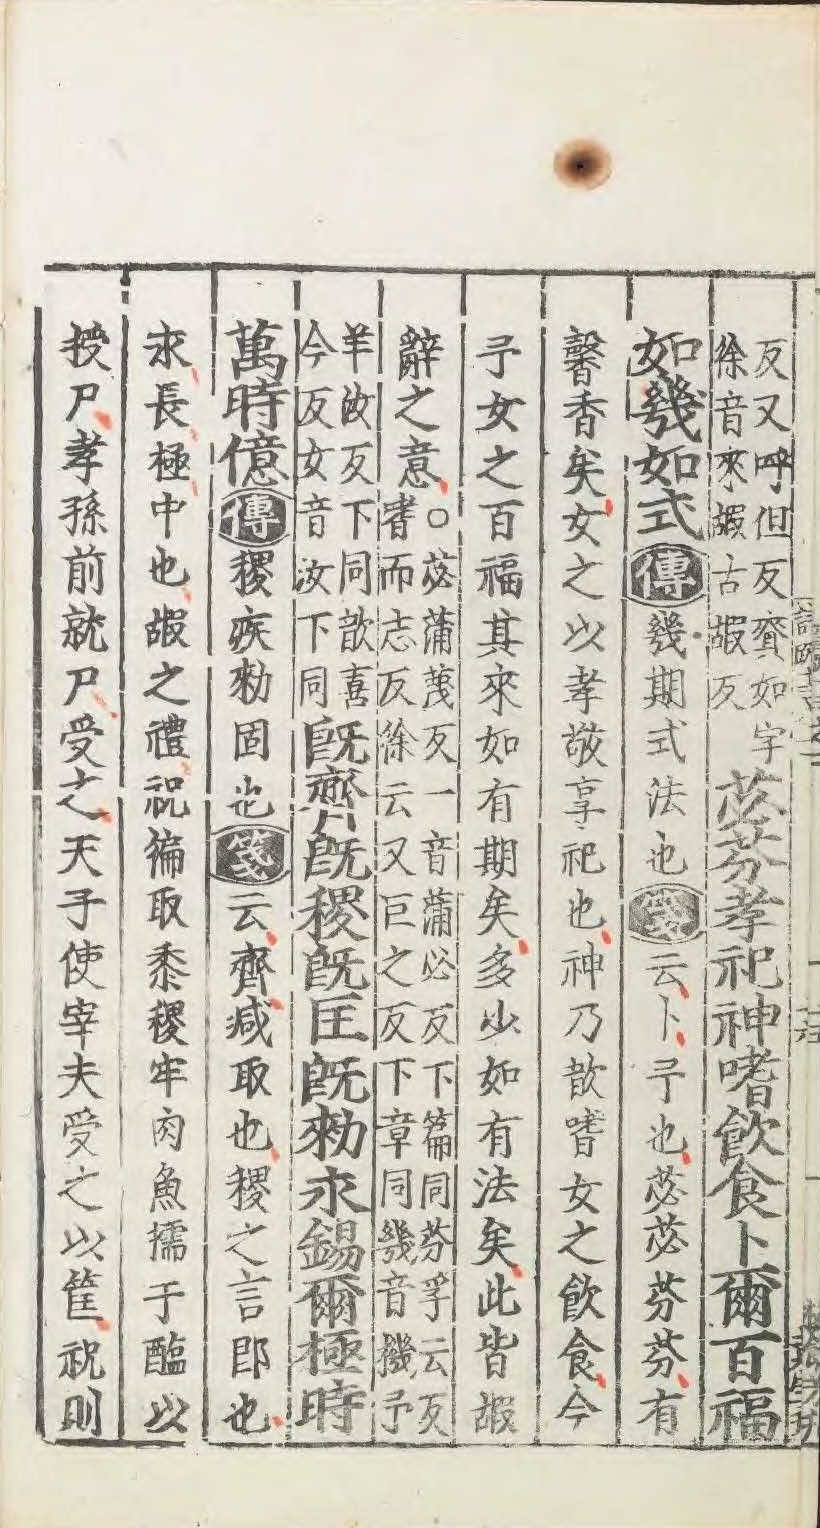 反又呼但反賚如字徐音來嘏古嘏反苾芬孝祀神嗜飲食卜爾百福
如幾如式傳幾期式法也箋云卜予也苾苾芬芬有
馨香矣女之以孝敬享祀也神乃歆嗜女之飲食今
予女之百福其來如有期矣多少如有法矣此皆嘏
辭之意○苾蒲蔑反一音蒲必反下篇同芬孚云反耆而志反徐云又巨之反下章同幾音機予
羊汝反下同歆喜今反女音汝下同既齊既稷既匡既勑永錫爾極時
萬時億傳稷疾勑固也箋云齊減取也稷之言即也
永長極中也嘏之禮祝徧取黍稷牢肉魚擩于醢以
授尸孝孫前就尸受之天子使宰夫受之以筐祝則